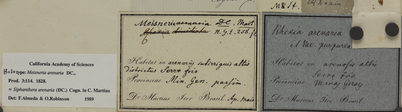 California Academy of Sciences
Holotype: Meisneria arenaria DC.,
Prod. 3:114. 1828.
= Siphanthera arenaria (DC.) Cogn. in C. Martius
Det: F.Almeda & O.Robinson 1989
Meisneria arenaria D.C. Mart
n. g. t. 256
Habitat in arenosis subirriguis altis
districtus Serro frio
Provinciae Min. Gen. passim.
De Martius Iter Brasil.
Rhexia arenaria
Flor. purpurea
Habitat in arenosis altis
Serro frio
Provinciae Minas Geraes
De Martius Iter Brasil.